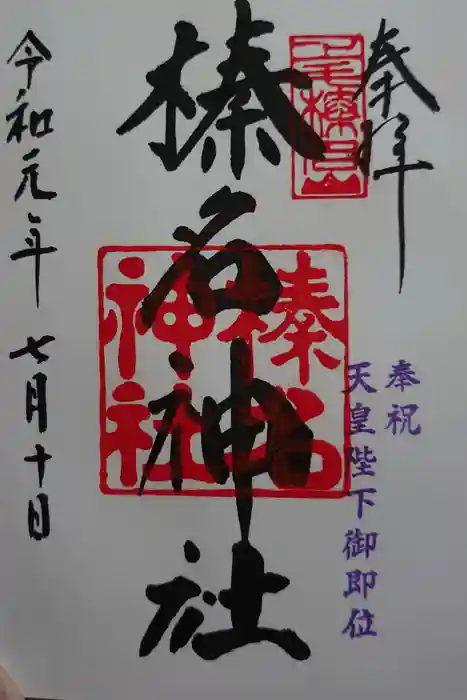 奉拝
奉祝
天皇陛下御即位
榛名神社
榛名
神社
令和元年七月十日